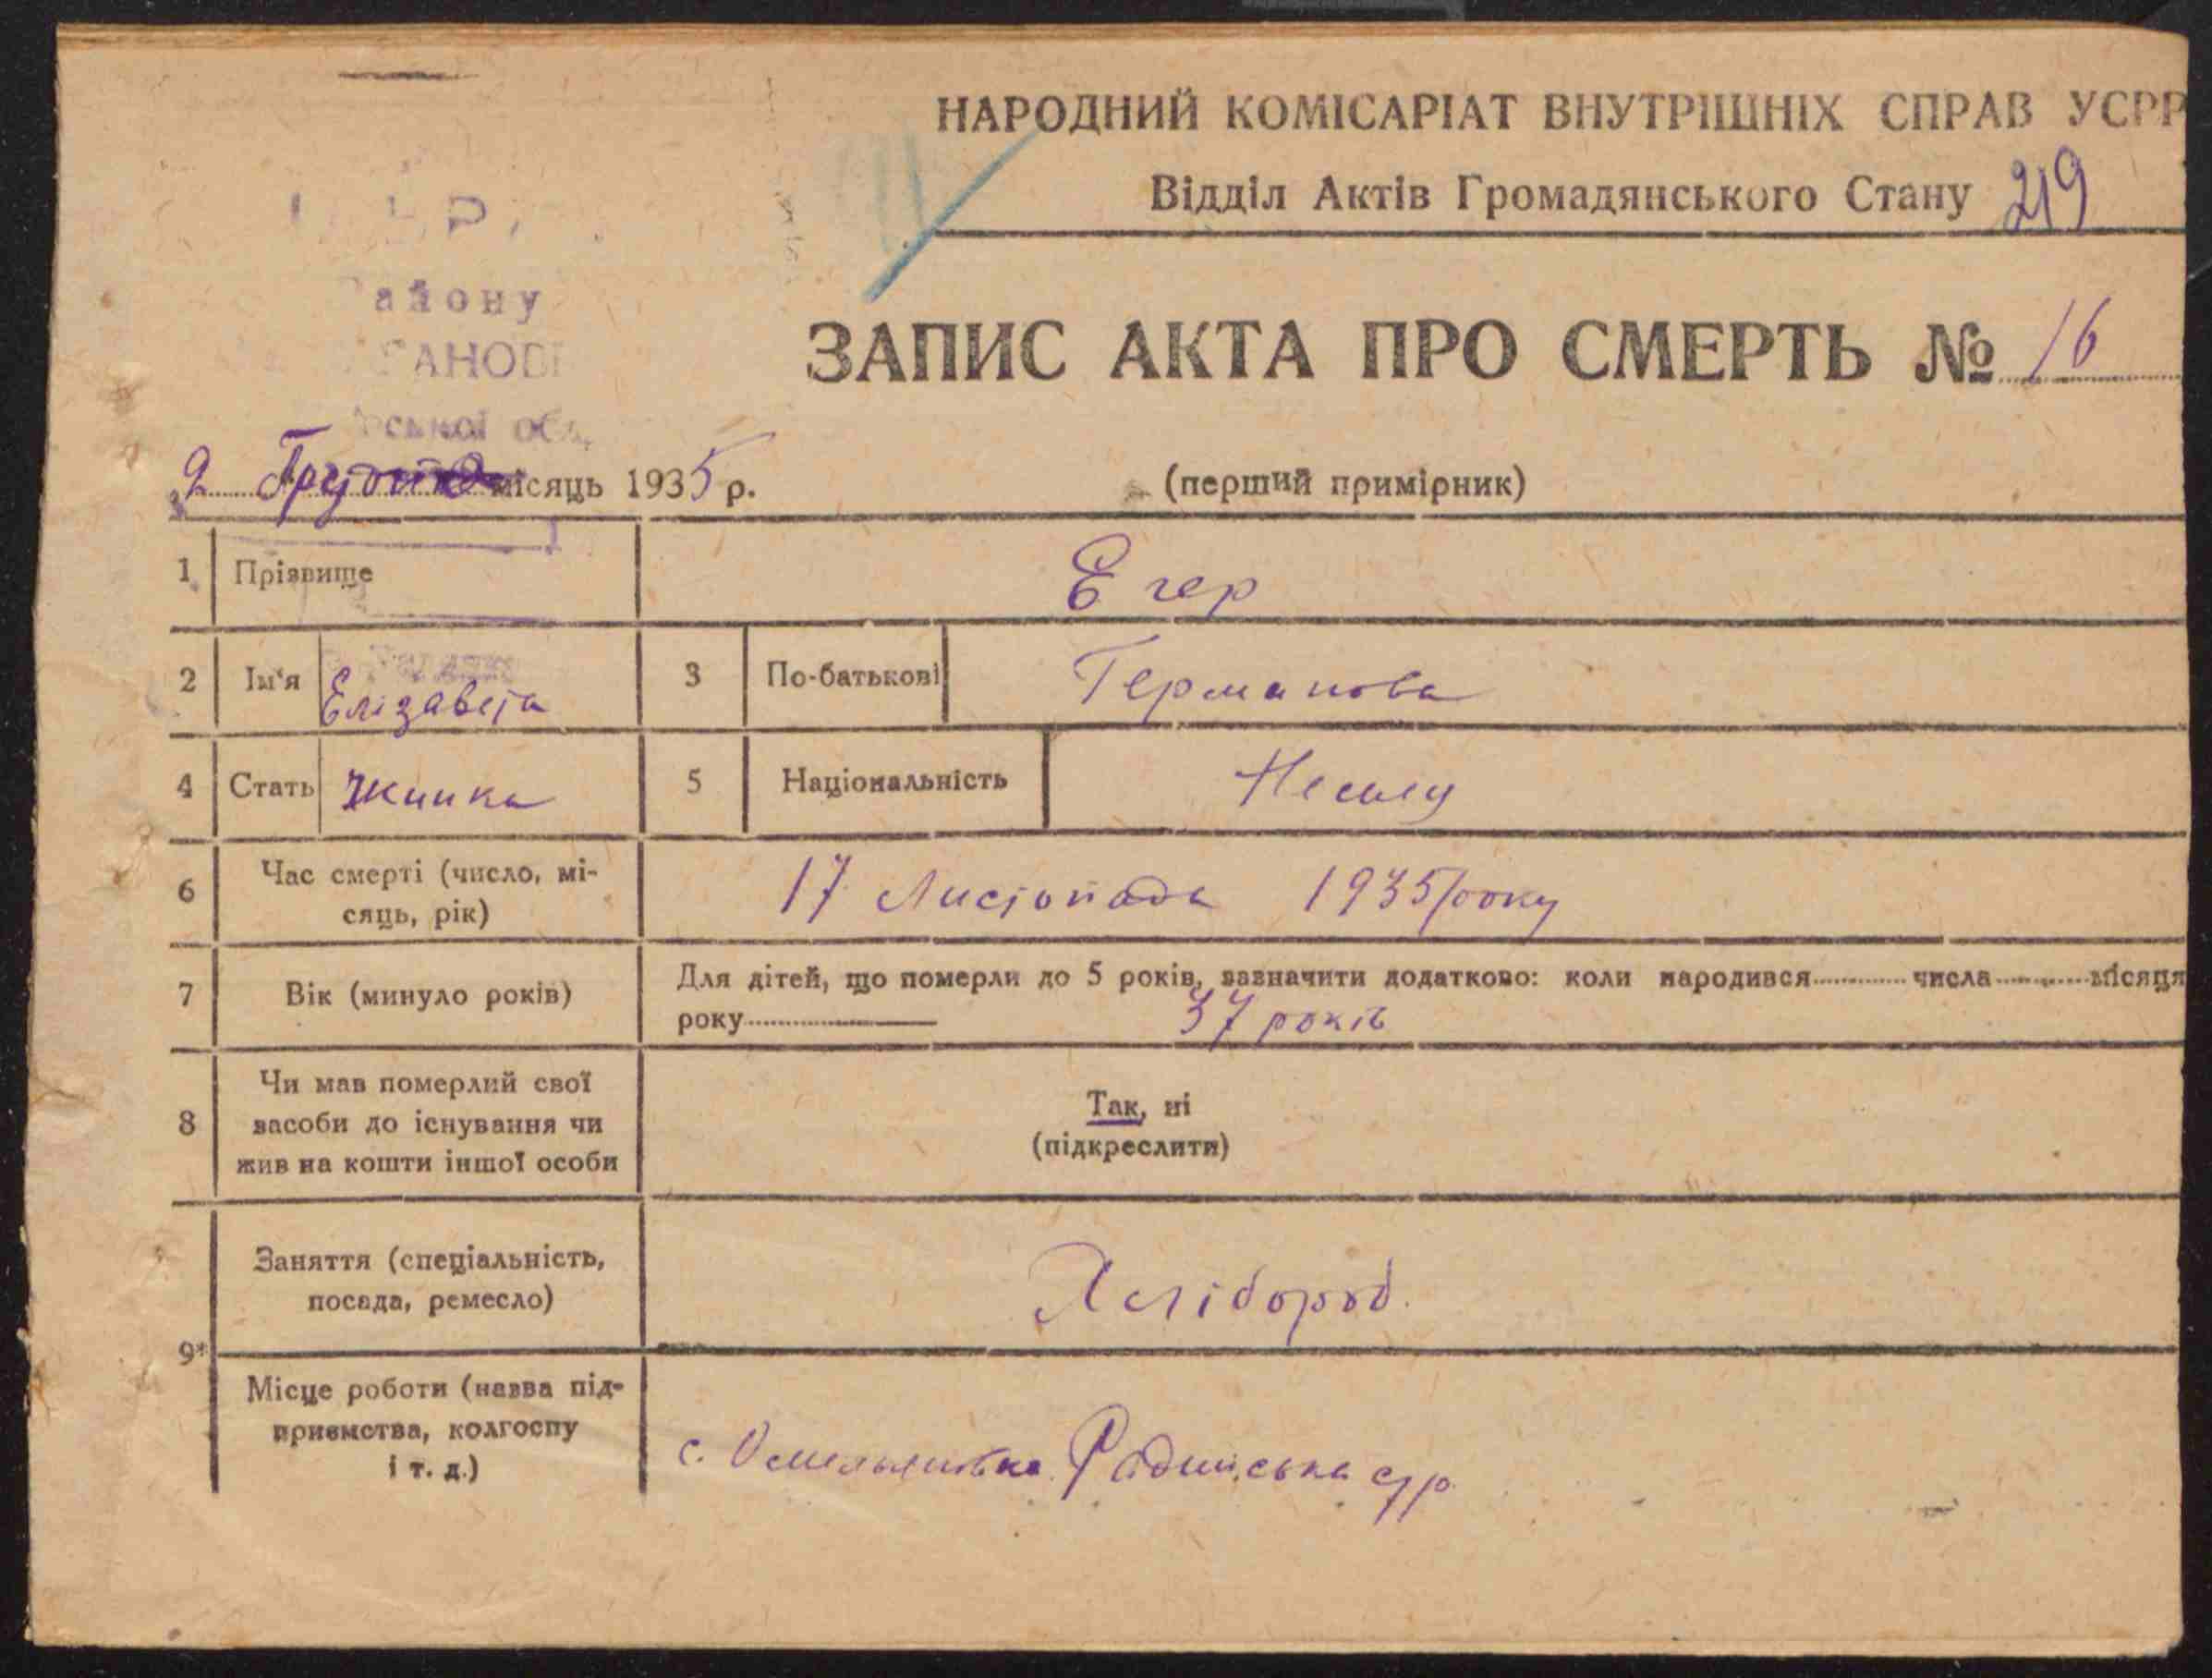 НАРОДНИЙ КОМІСАРІАТ ВНУТРІШНІХ СПРАВ УСРР
Відділ Актів Громадянського Стану 219
айону
ської обл.
ЗАПИС АКТА ПРО СМЕРТЬ № 16
9 Грудня місяць 1935 р.
(перший примірник)
1 Прізвище Егер
2 Ім'я Елізавета 3 По-батькові Германова
4 Стать Жинка 5 Національність
6 Час смерті (число, мі-
сяць, рік) 17 Листопада 1935 року
7 Вік (минуло років) Для дітей, що померли до 5 років, зазначити додатково: коли народився числа місяця
року 37 років
8 Чи мав померлий свої
засоби до існування чи
жив на кошти іншої особи
Так, ні
(підкреслити)
Заняття (спеціальність,
посада, ремесло) Хлібороб.
9*
Місце роботи (назва під-
приємства, колгоспу
і т. д.)
с. Омельяновка